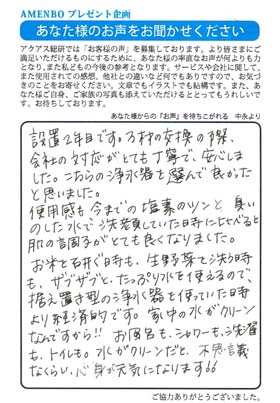 AMENBO プレゼント企画
あなた様のお声をお聞かせください
アクアス総研では「お客様の声」を募集しております。より皆さまにご
満足いただけるものにするために、あなた様の率直なお声が何よりも力
となり、また私どもの今後の参考となります。サービスや会社に関して、
また使用されての感想、他社との違いなど何でもありですので、お気づ
きのことをお寄せください。文章でもイラストでも結構です。また、あ
なた様ご自身、ご家族の写真も添えていただけるととってもうれしいで
す。お待ちしております。
あなた様からの『お声』を待ちこがれる 中永より
設置2年目です。ろ材の交換の際、
会社の対応がとても丁寧で、安心しま
した。こちらの浄水器を選んで良かった
と思いました。
使用感も今までの塩素のツンと臭い
のした水で洗顔していた時に比べると
肌の調子がとても良くなりました。
お米を研ぐ時も、生野菜を洗う時
も、ザブザブと、たっぷり水を使えるので、
据え置き型の浄水器を使っていた時
より経済的です。家中の水がクリーン
なんですから!! お風呂も、シャワーも、洗濯
も、トイレも。水がクリーンだと、不思議
なくらい、心身が元気になります
ご協力ありがとうございました。